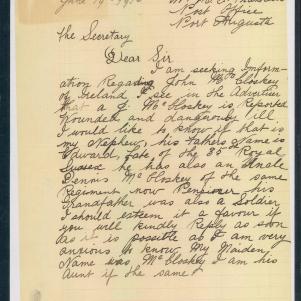 June 19th 1915
Post Office
Port Augusta
The Secretary
Dear Sir
I am seeking Inform-
ation Regading John McCloskey
of Ireland I see in the Advertiser
that a J. McCloskey is Reported
Wounded and dangously Ill.
I would like to know if that is
my Nephew, his fathers Name is
Edward, late of the 35th Royal
Sussex he has also an Uncle
Dennis McCloskey of the same
Regiment, now Pensioner his
Grandfather was also a Soldier,
I should esteem it a favour if
you will kindly Reply as soon
as it is possible as I am very
anxious to know, My Maiden
Name was McCloskey I am his
Aunt if the same